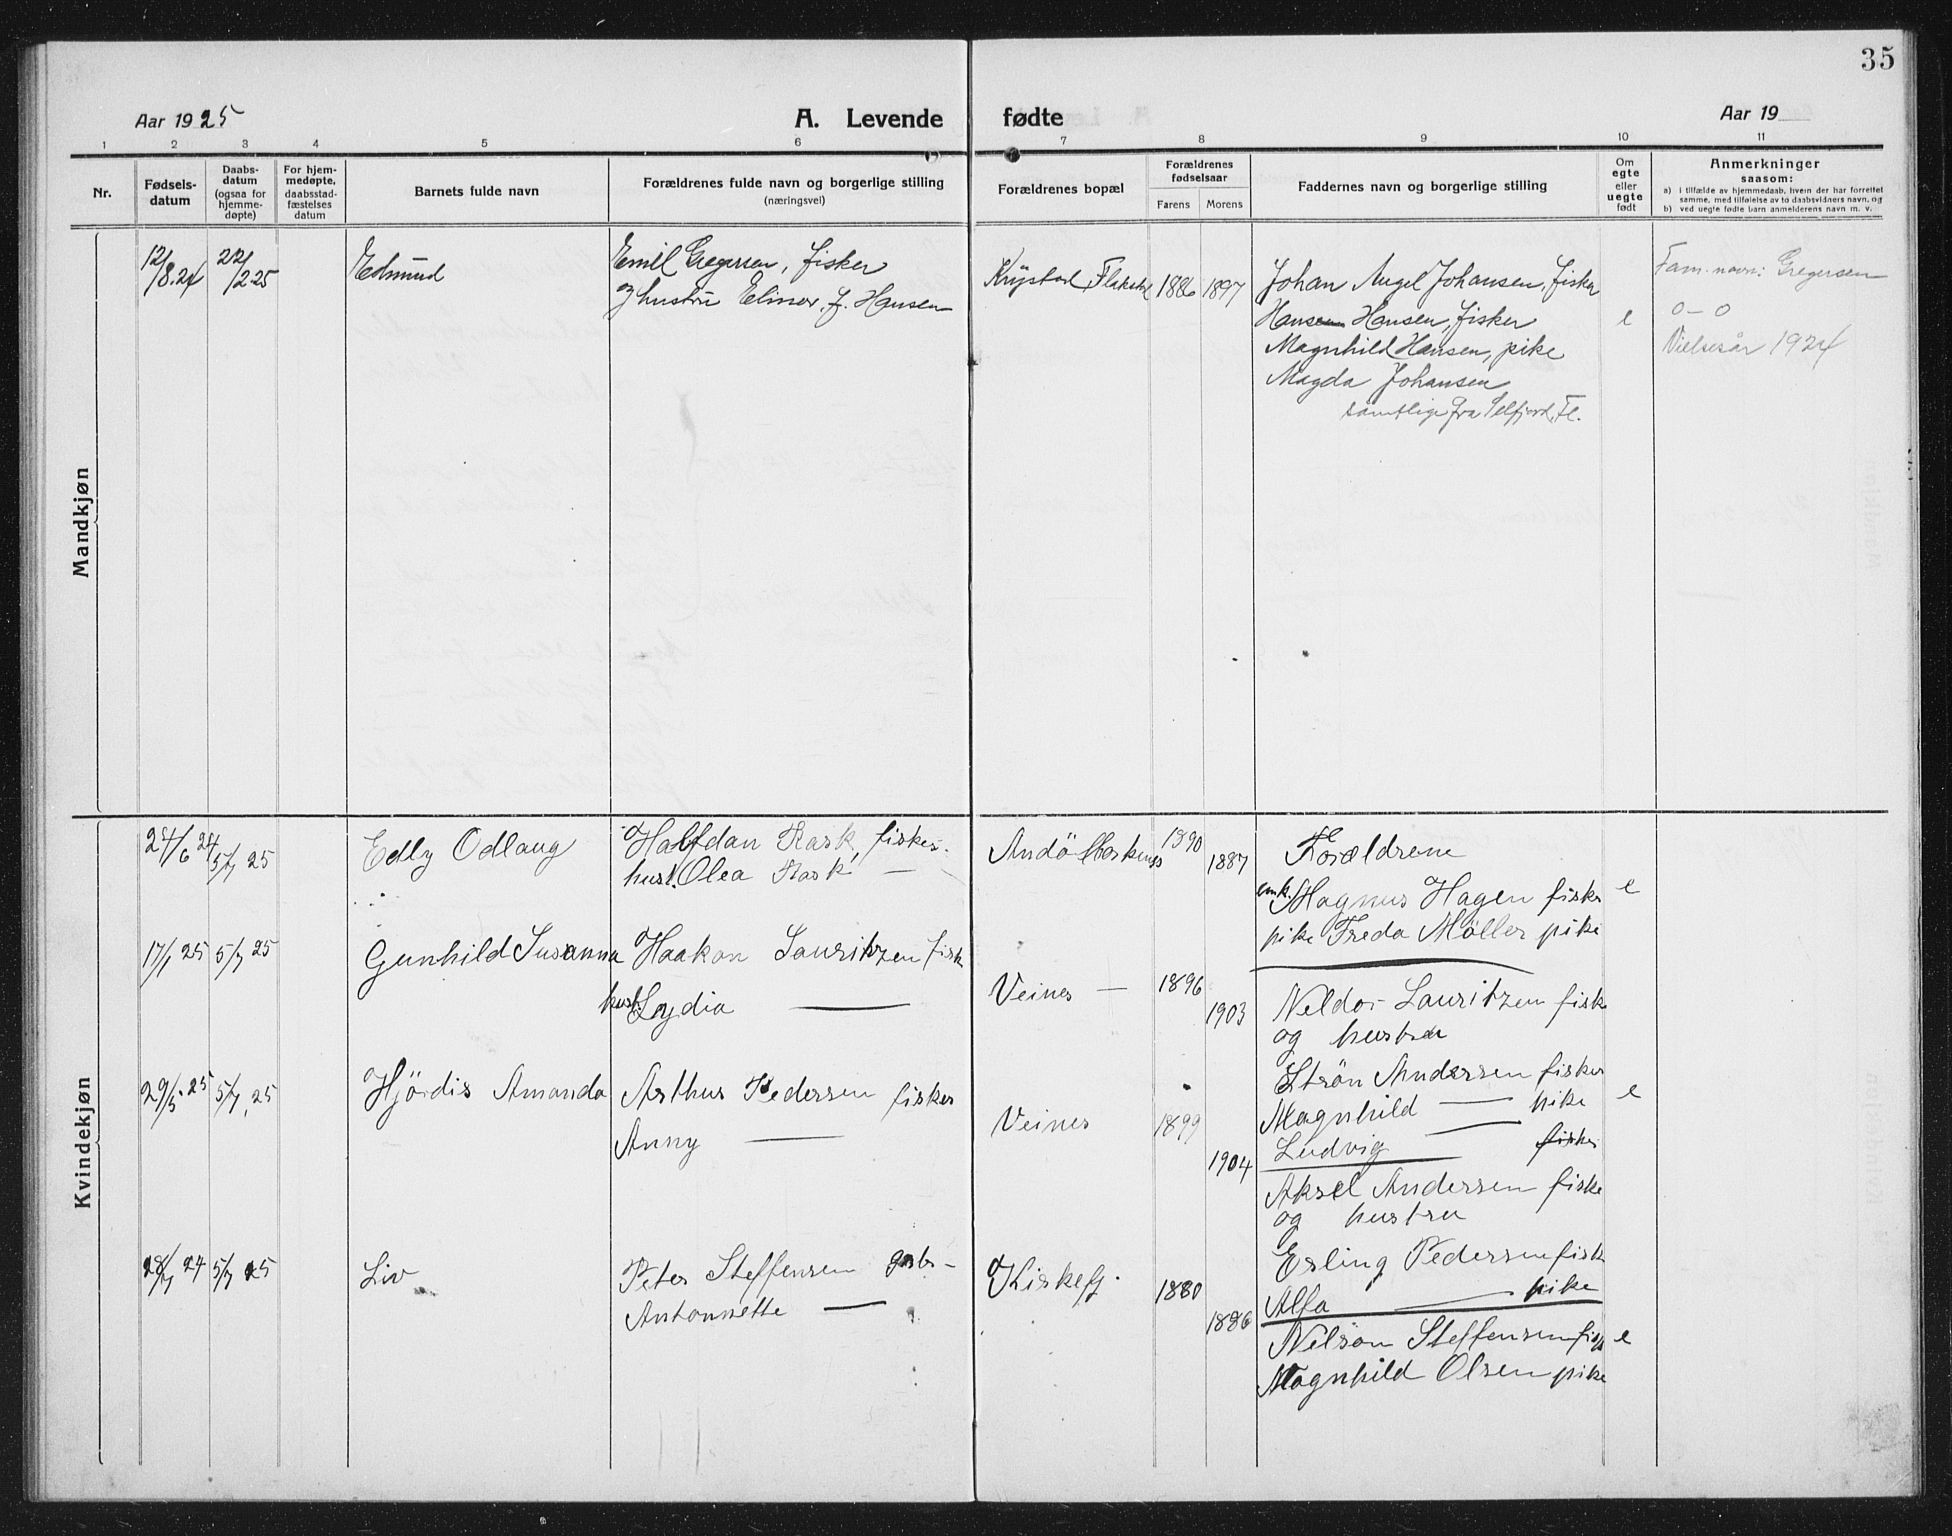 35
Aar 1925
A. Levende fødte
Aar 19
1 2 3 4 5 6 7 8 9 10 11
Nr.
Fødsels-
datum
Daabs-
datum
(ogsaa for
hjemme-
døpte)
For hjem-
medøpte,
daabsstad-
fæstelses
datum
Barnets fulde navn
Forældrenes fulde navn og borgerlige stilling
(næringsvei)
Forældrenes bopæl
Forældrenes
fødselsaar
Farens Morens
Faddernes navn og borgerlige stilling
Om
egte
eller
uegte
født
Anmerkninger
saasom:
a) i tilfælde av hjemmedaab, hvem der har forrettet
samme, med tilføielse av to daabsvidners navn, og
b) ved uegte fødte barn anmelderens navn m. v.
Mandkjøn
12/8.24 22/2.25 Edmund
Emil Gregersen, fisker
og hustru Elinor, f. Hansen
Krystad, Flakstad 1886 1897
Johan Angel Johansen, fisker
Hansen Hansen, fisker
Magnhild Hansen, pike
Magda Johansen
samtlige fra Selfjord, Fl.
e
Fam. navn: Gregersen
o-o
Vielsesår 1924
Kvindekjøn
24/6 24 5/7 25 Edly Odlaug
Halfdan Rask, fisker
hust. Olea Rask —
1890 1887
Forældrene
emk. Magnus Hagen fisker
pike Freda Möller pike
e
17/1 25 5/7 25 Gunhild Susanna
Haakon Lauritzen fisk
hust. Lydia —
Veines — 1896 1903
Neldor Lauritzen fisk
og hustru
Strön Andersen fisker
Magnhild — pike
Ludvig — fisker
e
29/5 25 5/7 25 Hjördis Amanda
Arthur Pedersen fisker
Anny —
Veines 1899 1904
Aksel Andersen fiske
og hustru
Erling Pedersen fisk
Alfa — pike
28/7 24 5/7 25 Liv
Peter Steffensen
Antonnette —
Kirkefj. 1880 1886
Nelson Steffensen
Magnhild Olsen pike
e